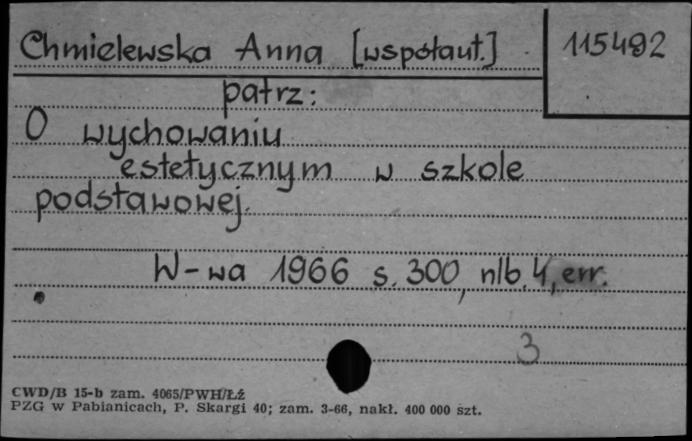 Chmielewska Anna [współaut.]
115492
patrz:
O wychowaniu
estetycznym w szkole
podstawowej.
W-wa 1966 s. 300, nlb. 4, err.
3
CWD/B 15-b zam. 4065/PWH/Łź
PZG w Pabianicach, P. Skargi 40; zam. 3-66, nakł. 400 000 szt.